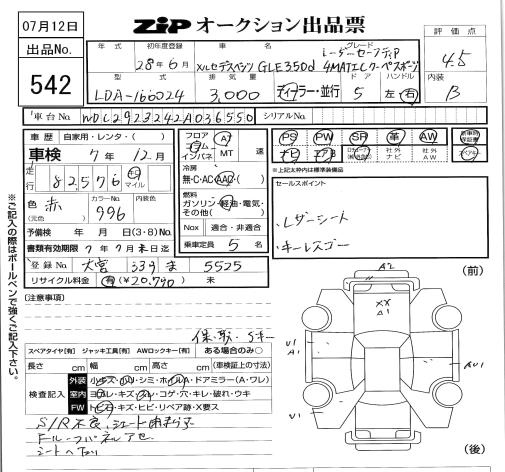 07月12日
出品No.
542
ZiP オークション出品票
評価点
4.5
内装
B
年式 初年度登録 車名 グレード
28年6月 メルセデスベンツ GLE350d 4MATICクーペスポーツ
型式 排気量 ドア ハンドル
LDA-166024 3,000 ディーラー・並行 5 左・右
車台No. WDC2923242A036550 シリアルNo.
車歴 自家用・レンタ・( )
車検 7年12月
走行 82576 km マイル
色 赤 (元色) カラーNo. 996 内装色
予備検 年 月 日 (3・8) No.
書類有効期限 7年7月末日迄
登録No. 大宮 339 ま 5525
リサイクル料金 有 (¥20,790) 未
フロア コラム インパネ AT MT 速
冷房 無・C・AC・AAC・( )
燃料 ガソリン・軽油・電気・その他( )
Nox 適合・非適合
乗車定員 5 名
PS PW SR 革 AW 新車時保証書
ナビ エアB 社外ナビ 社外AW
※上記太枠内は標準装備品
セールスポイント
・レザーシート
・キーレスゴー
(注意事項)
スペアタイヤ[有] ジャッキ工具[有] AWロックキー[有] ある場合のみ○
長さ cm 幅 cm 高さ cm (車検証上の寸法)
検査記入
外装 小キズ・凹・シミ・ホイルA・ドアミラー(A・ワレ)
室内 ヨゴレ・キズ・スレ・コゲ・穴・キレ・破れ・ウキ
FW トビ石・キズ・ヒビ・リペア跡・X要ス
※ご記入の際はボールペンで強くご記入下さい。
(前)
A2
XX
A1
U1
A1
AU1
U1
U1
(後)